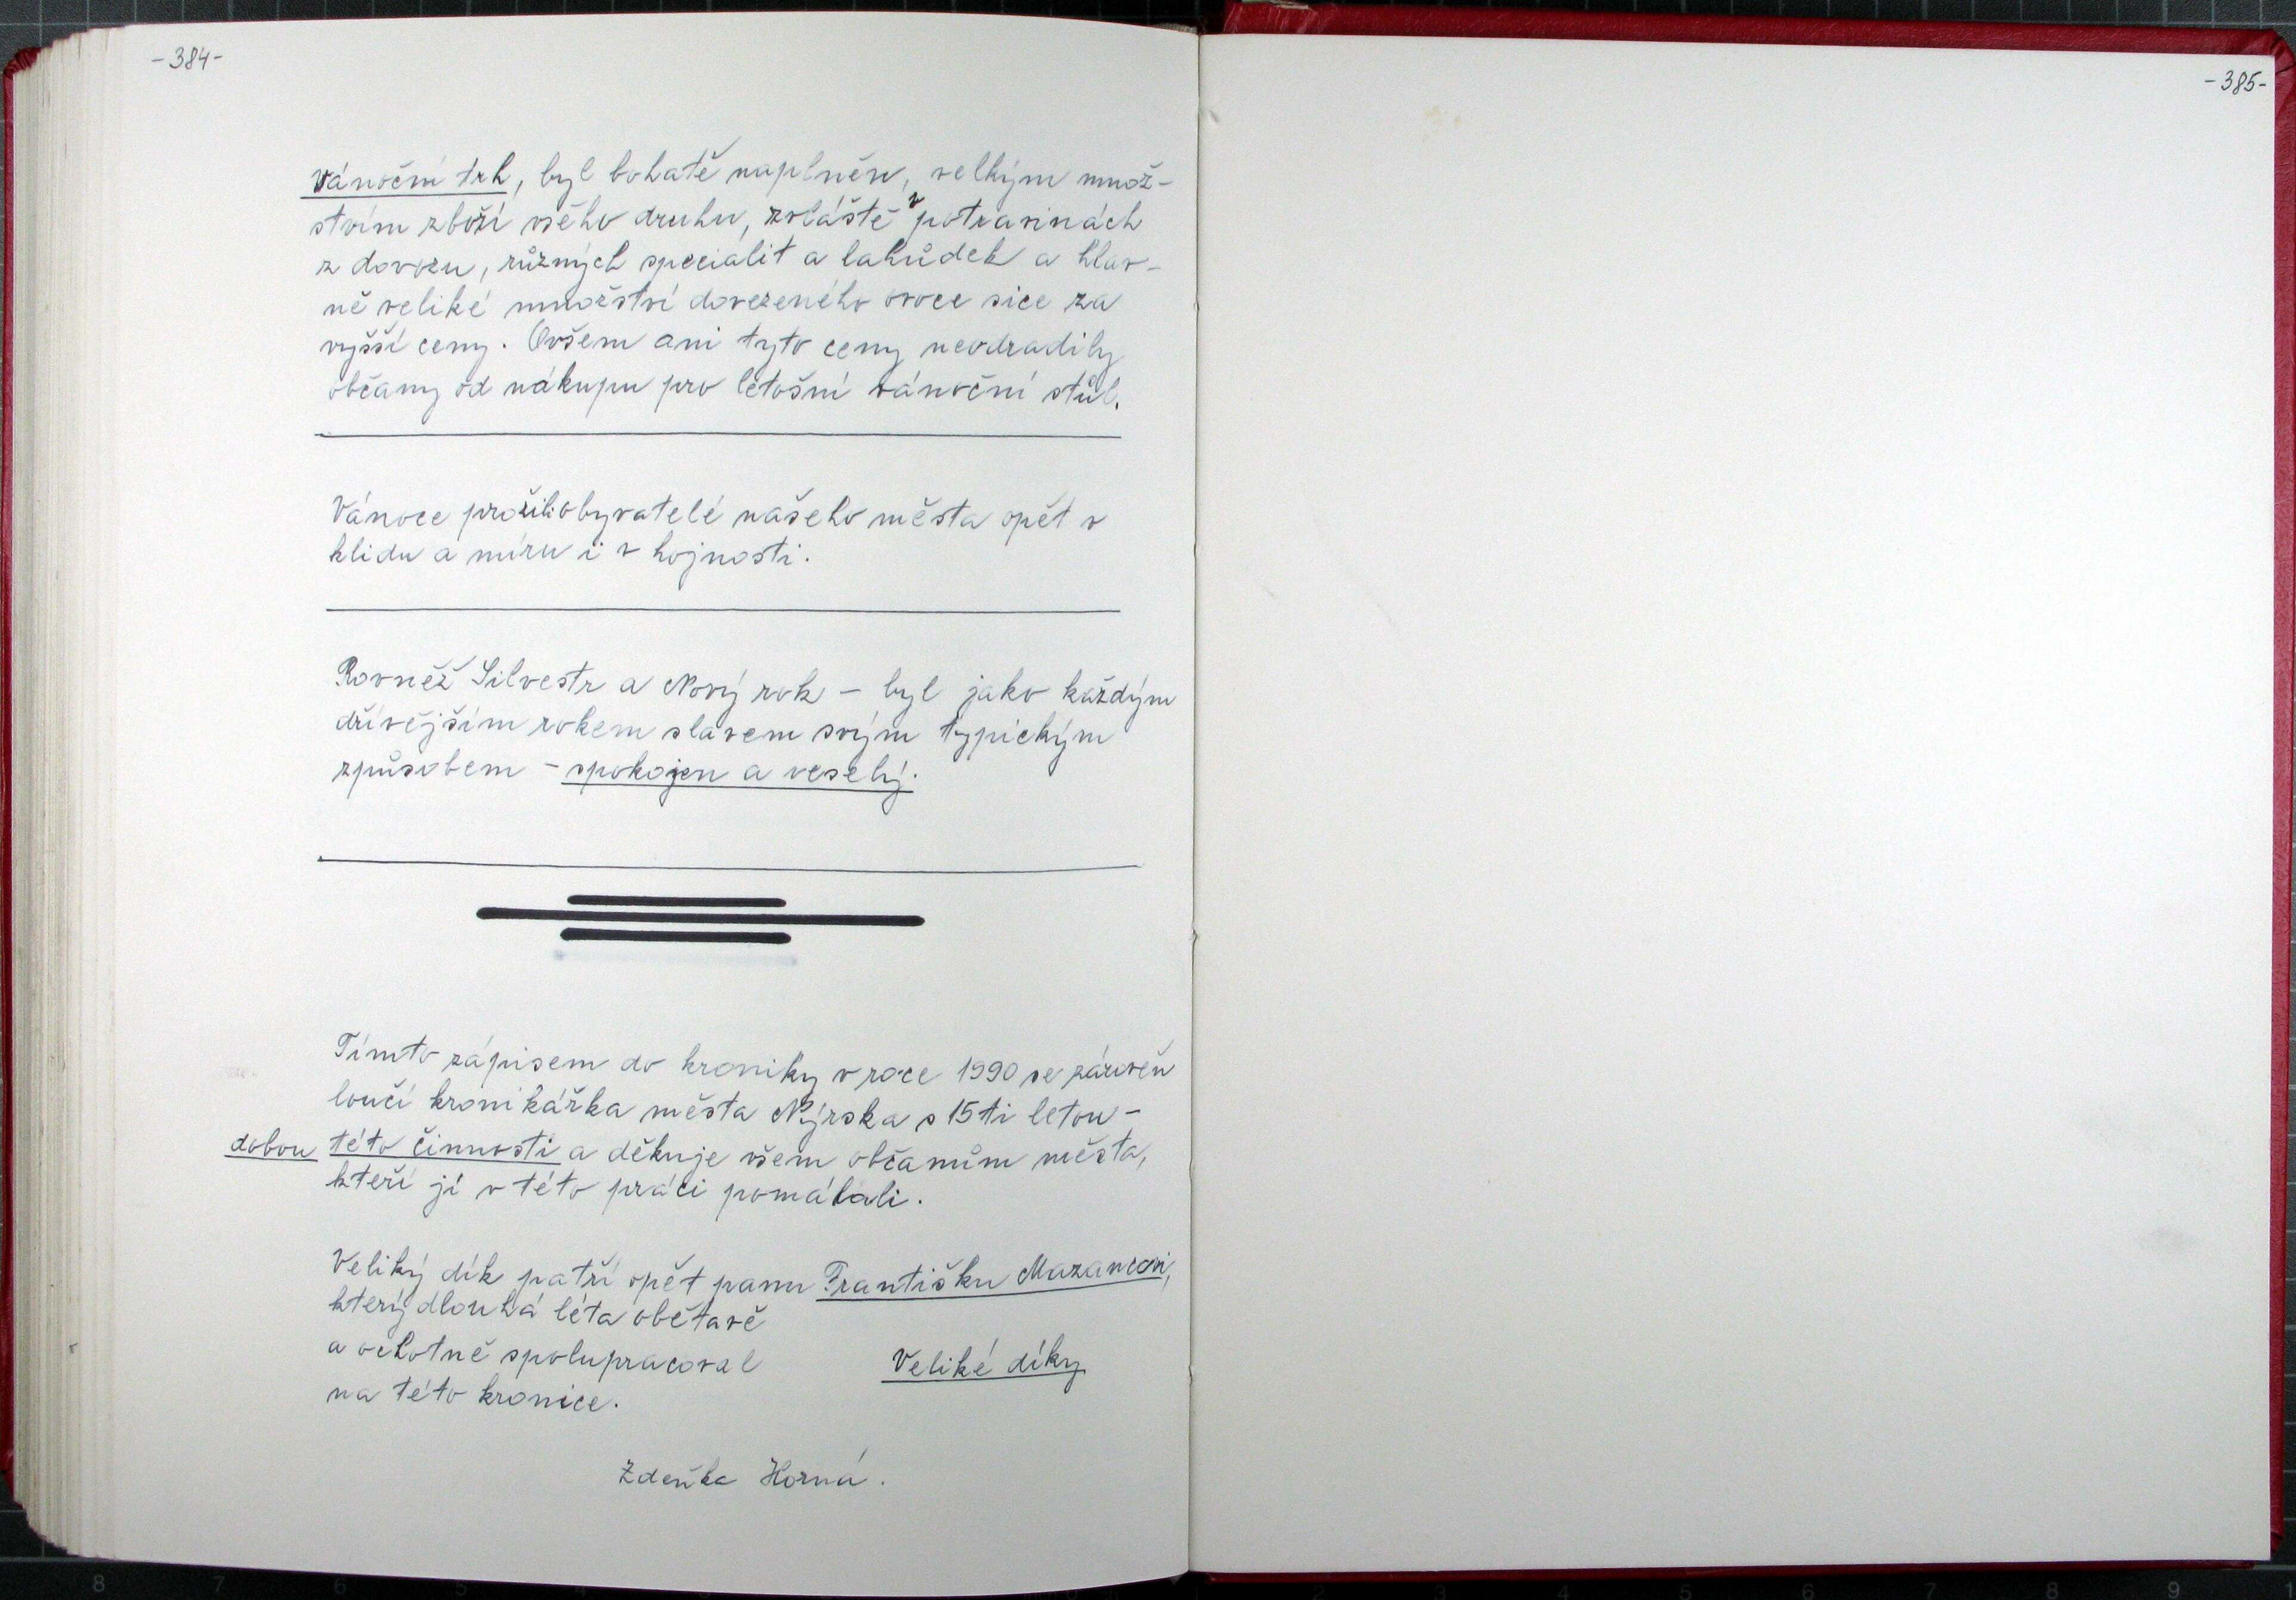 -384-
Vánoční trh, byl bohatě naplněn, velkým množ-
stvím zboží všeho druhu, zvláště v potravinách
z dovozu, různých specialit a lahůdek a hlav-
ně veliké množství dovezeného ovoce sice za
vyšší ceny. Ovšem ani tyto ceny neodradily
občany od nákupu pro letošní vánoční stůl.
Vánoce prožili obyvatelé našeho města opět v
klidu a míru i v hojnosti.
Rovněž Silvestr a Nový rok - byl jako každým
dřívějším rokem slaven svým typickým
způsobem - spokojen a veselý.
Tímto zápisem do kroniky v roce 1990 se zároveň
loučí kronikářka města Nýrska s 15ti letou -
dobou této činnosti a děkuje všem občanům města,
kteří jí v této práci pomáhali.
Veliký dík patří opět panu Františku Mazancovi,
který dlouhá léta obětavě
a ochotně spolupracoval
na této kronice.
Veliké díky
Zdeňka Horná.
-385-